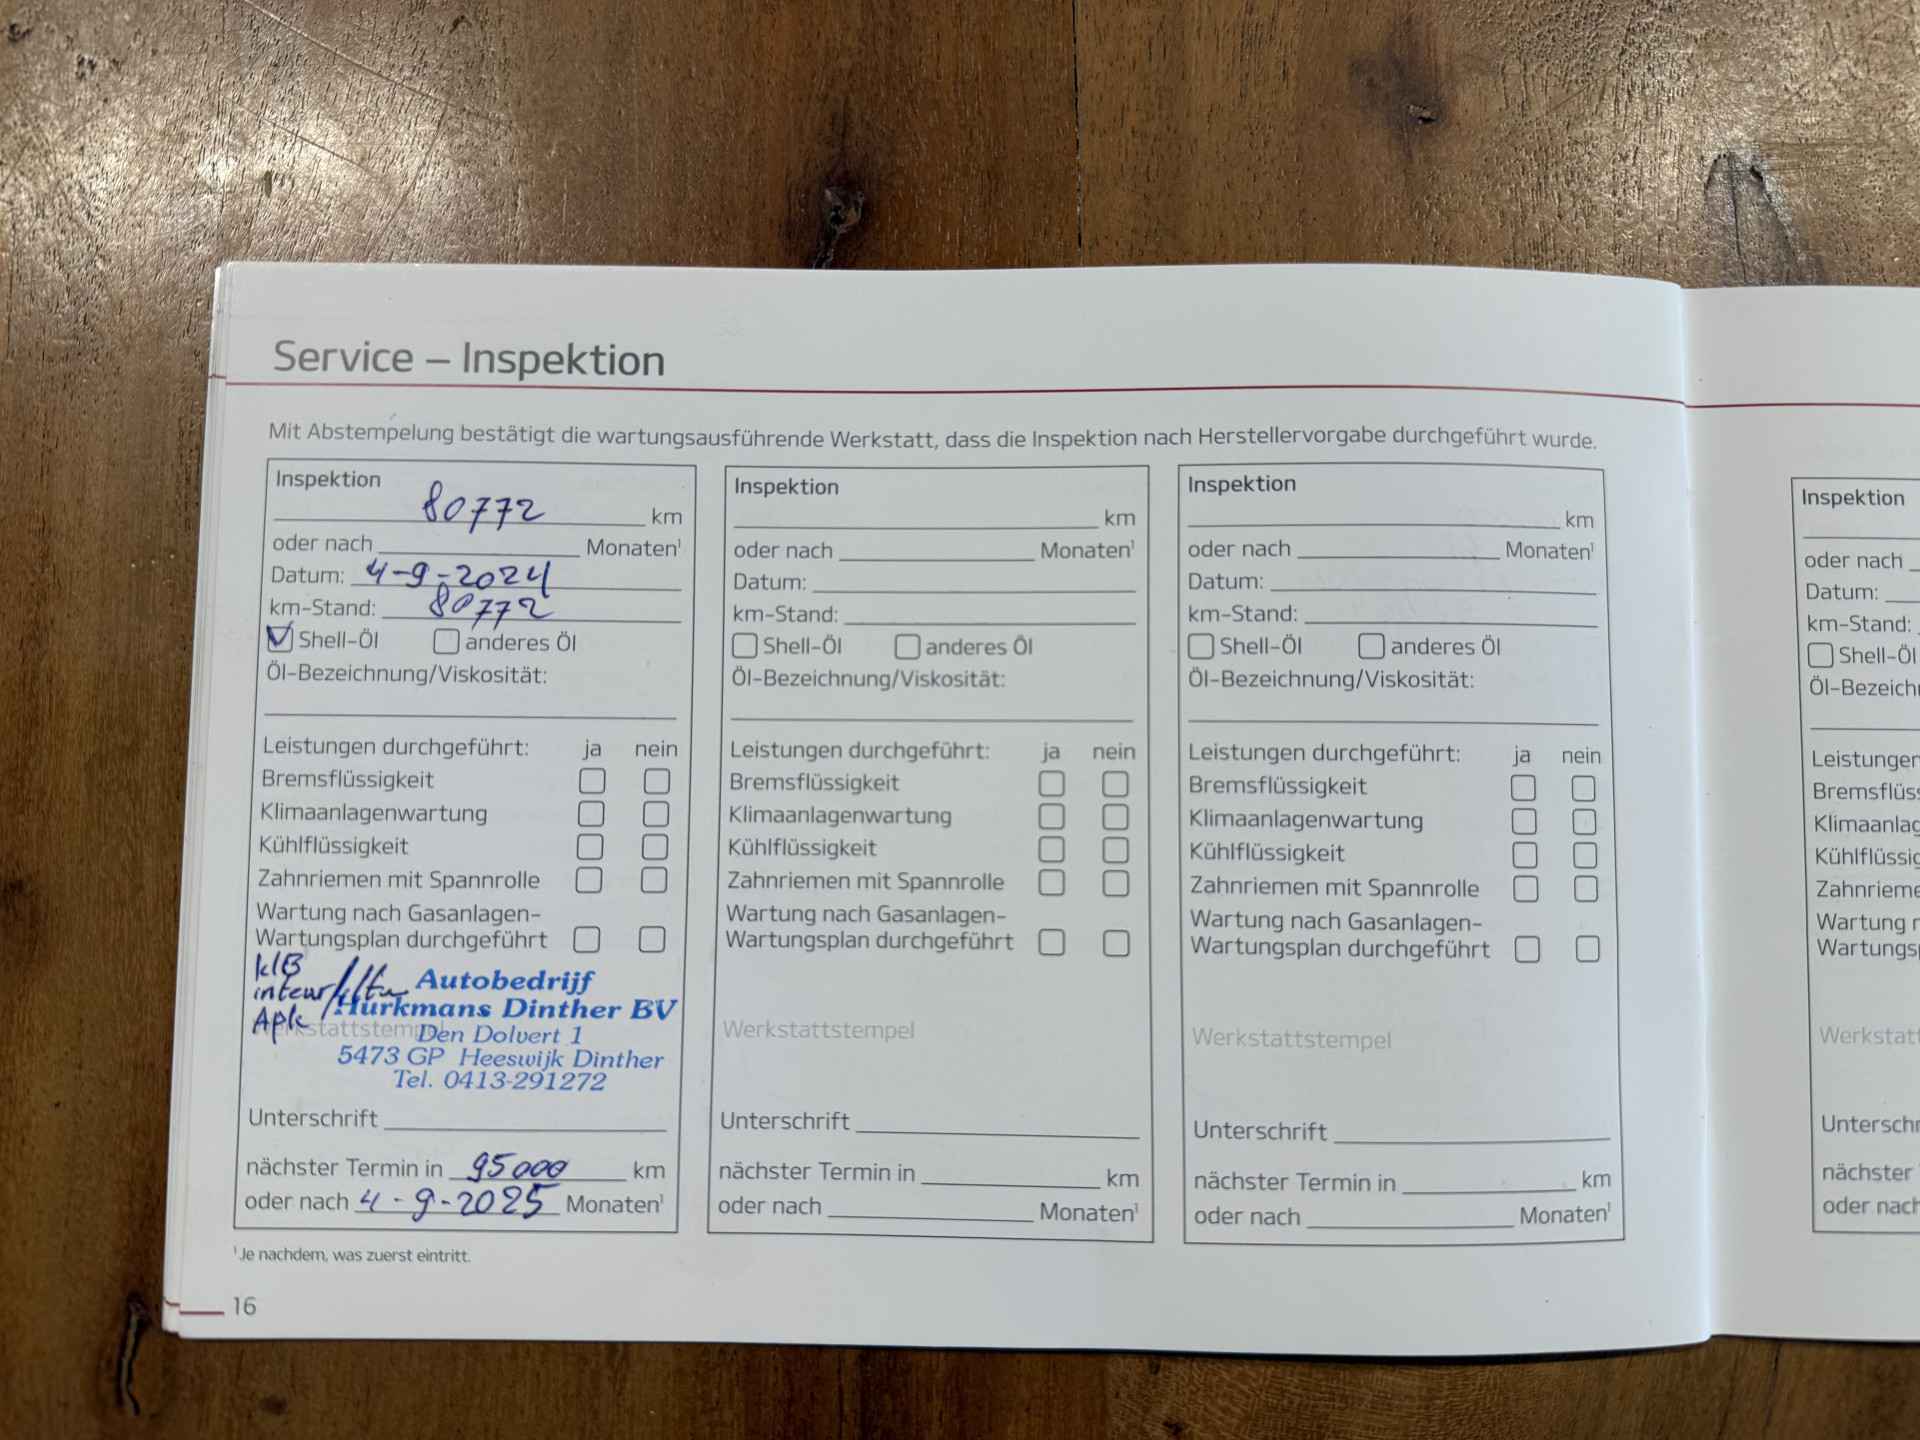 Service – Inspektion
Mit Abstempelung bestätigt die wartungsausführende Werkstatt, dass die Inspektion nach Herstellervorgabe durchgeführt wurde.
Inspektion
80772 km
oder nach Monaten¹
Datum: 4-9-2024
km-Stand: 80772
Shell-Öl anderes Öl
Öl-Bezeichnung/Viskosität:
Leistungen durchgeführt: ja nein
Bremsflüssigkeit
Klimaanlagenwartung
Kühlflüssigkeit
Zahnriemen mit Spannrolle
Wartung nach Gasanlagen-
Wartungsplan durchgeführt
klB
inteur
Apk
Autobedrijf
Hurkmans Dinther BV
Werkstattstempel
Den Dolvert 1
5473 GP Heeswijk Dinther
Tel. 0413-291272
Unterschrift
nächster Termin in 95000 km
oder nach 4-9-2025 Monaten¹
Inspektion
km
oder nach Monaten¹
Datum:
km-Stand:
Shell-Öl anderes Öl
Öl-Bezeichnung/Viskosität:
Leistungen durchgeführt: ja nein
Bremsflüssigkeit
Klimaanlagenwartung
Kühlflüssigkeit
Zahnriemen mit Spannrolle
Wartung nach Gasanlagen-
Wartungsplan durchgeführt
Werkstattstempel
Unterschrift
nächster Termin in km
oder nach Monaten¹
Inspektion
km
oder nach Monaten¹
Datum:
km-Stand:
Shell-Öl anderes Öl
Öl-Bezeichnung/Viskosität:
Leistungen durchgeführt: ja nein
Bremsflüssigkeit
Klimaanlagenwartung
Kühlflüssigkeit
Zahnriemen mit Spannrolle
Wartung nach Gasanlagen-
Wartungsplan durchgeführt
Werkstattstempel
Unterschrift
nächster Termin in km
oder nach Monaten¹
¹Je nachdem, was zuerst eintritt.
16
Inspektion
oder nach
Datum:
km-Stand:
Shell-Öl
Öl-Bezeich
Leistungen
Bremsflüss
Klimaanlag
Kühlflüssig
Zahnrieme
Wartung n
Wartungsp
Werkstatt
Unterschr
nächster
oder nach